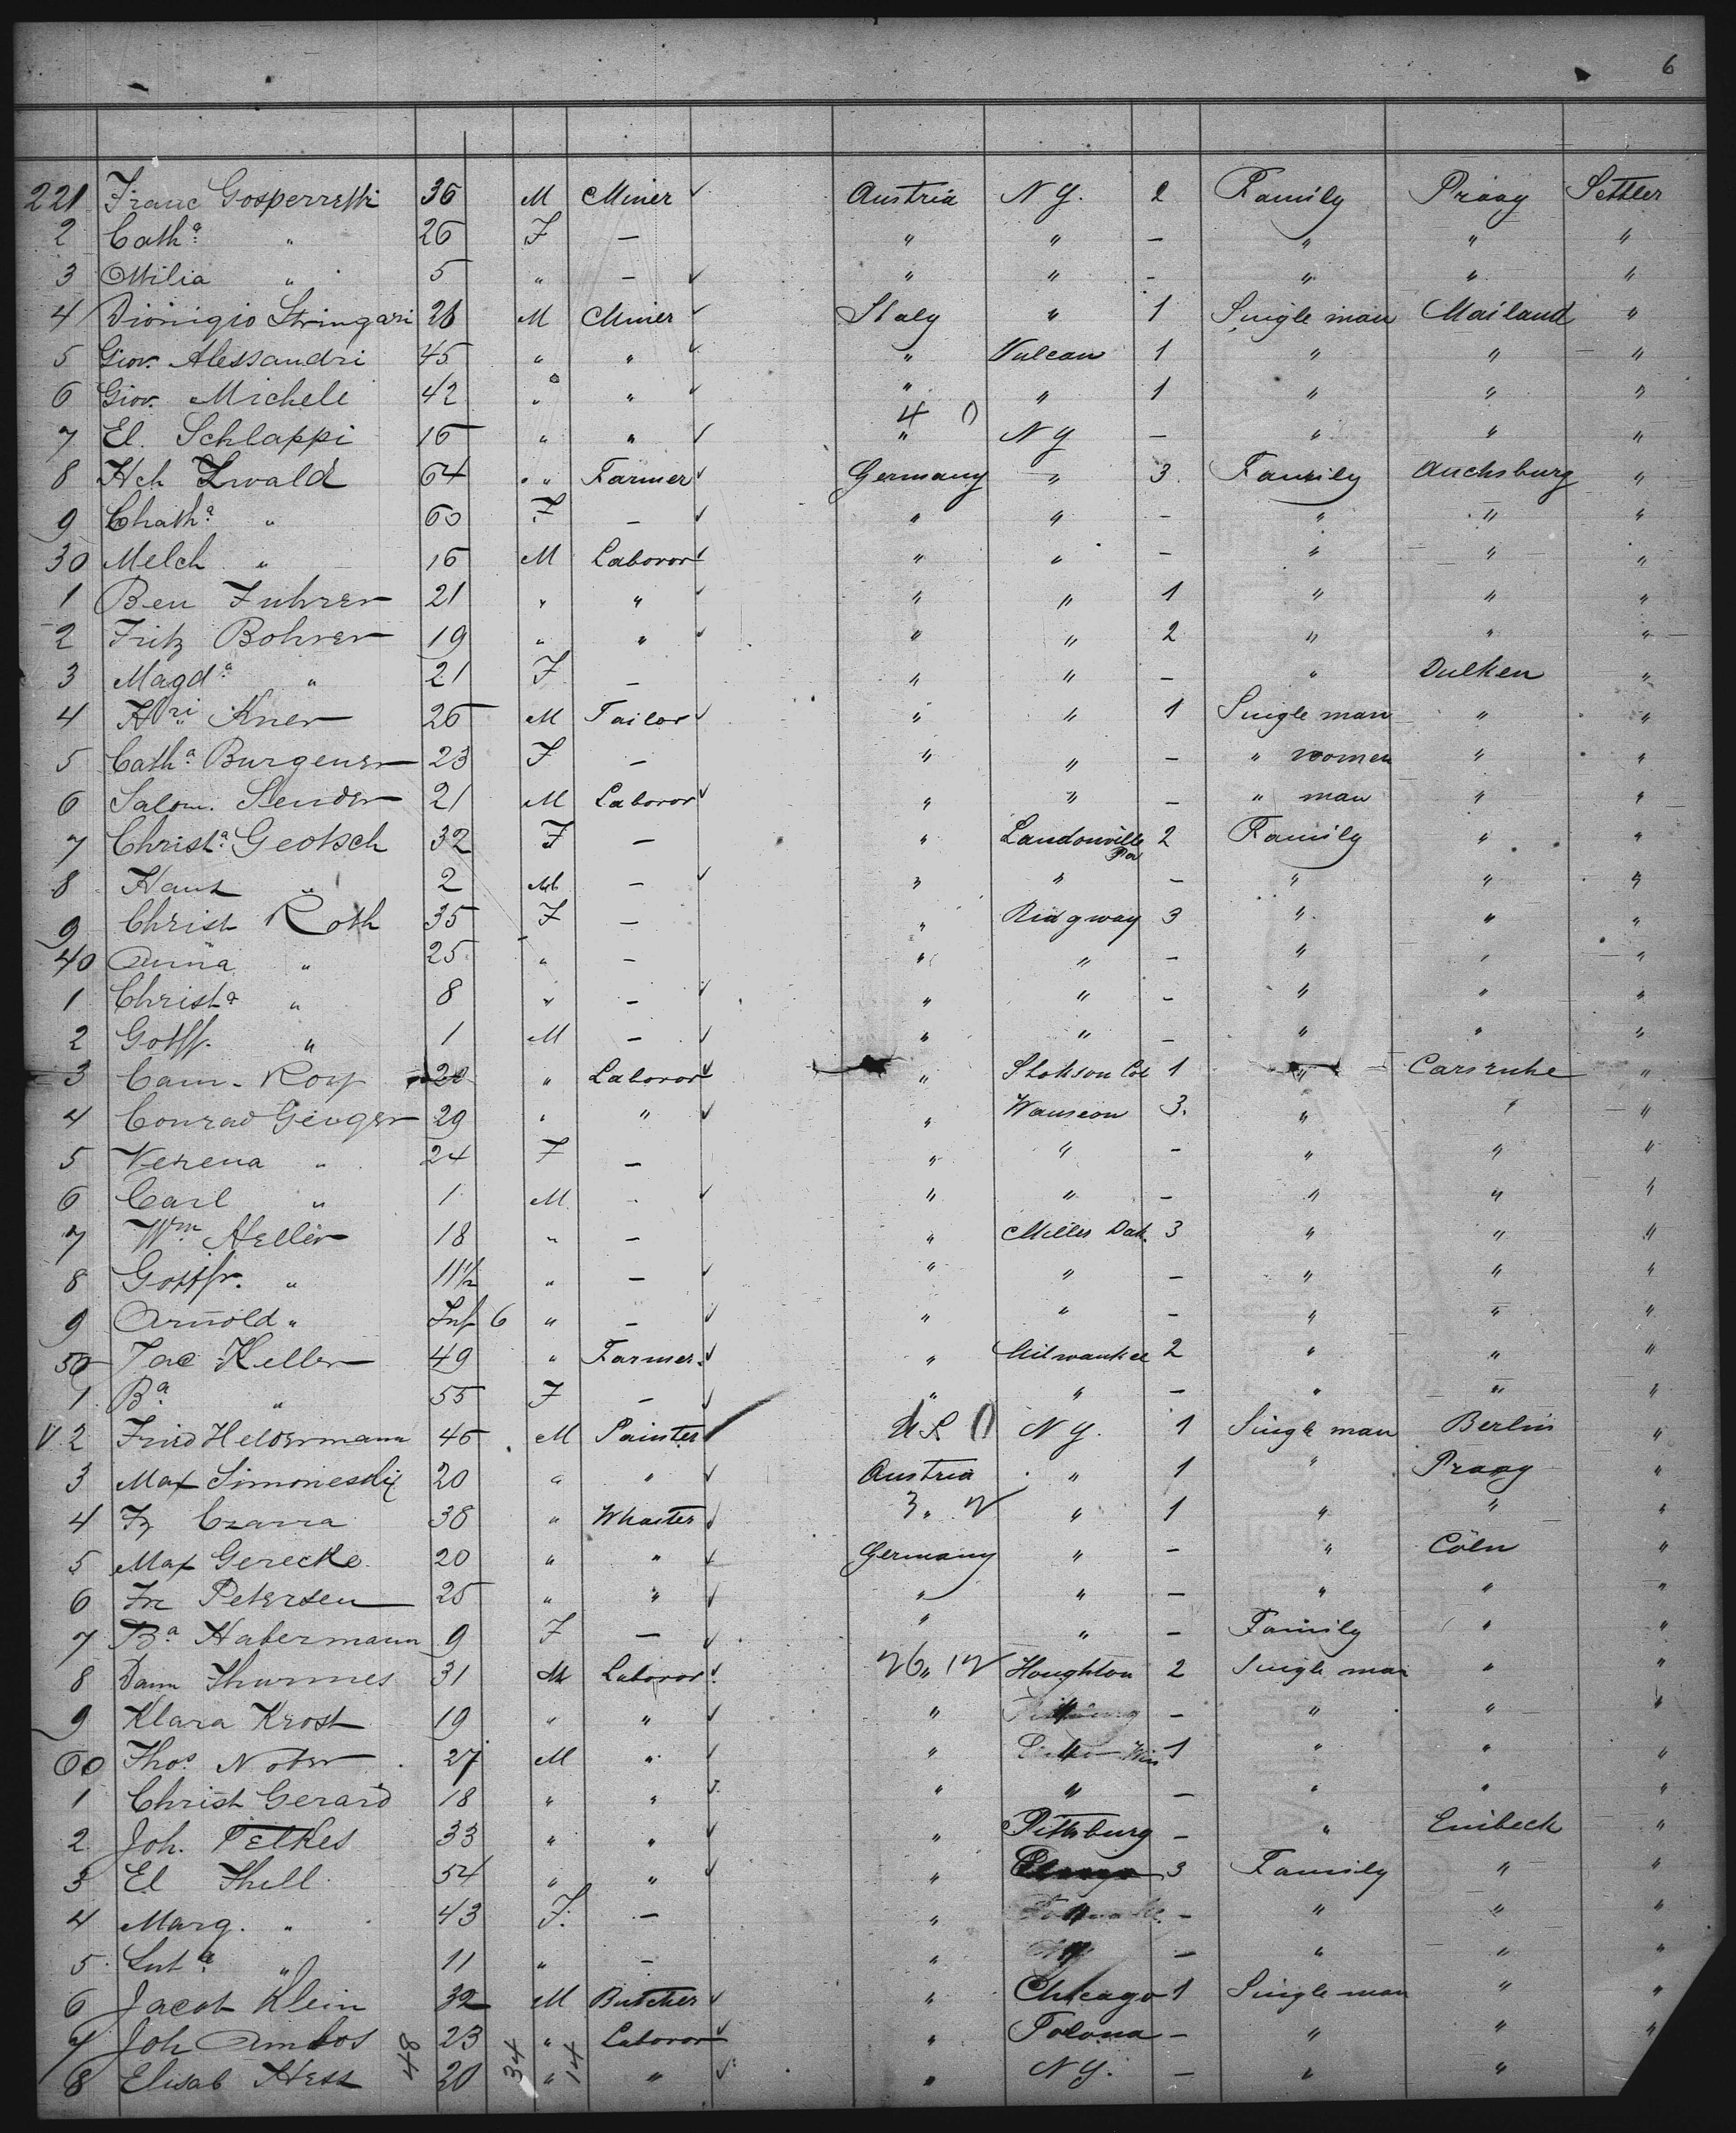 6
221 Franc Gosperretti 36 M Miner Austria N Y. 2 Family Praag Settler
2 Cath.a " 26 F — " " — " " "
3 Ottilia " 5 " — " " — " " "
4 Dionigio Stringari 26 M Miner Italy " 1 Single man Mailand "
5 Giov. Alessandri 45 " " " Vulcan 1 " " "
6 Giov. Michele 42 " " " " 1 " " "
4 0
7 El. Schlappi 16 " " " N Y — " " "
8 Hch Zwald 64 " Farmer Germany " 3. Family Auchsburg "
9 Chath.a " 60 F — " " — " " "
30 Melch " 16 M Laboror " " — " " "
1 Ben Fuhrer 21 " " " " 1 " " "
2 Fritz Bohrer 19 " " " " 2 " " "
3 Magd.a " 21 F — " " — " Dulken "
4 Hri Kner 26 M Tailor " " 1 Single man " "
5 Cath.a Burgener 23 F — " " — " women " "
6 Salom. Sender 21 M Laboror " " — " man " "
7 Christ.a Geotsch 32 F — " Landonville Pa 2 Family " "
8 Hans " 2 M — " " — " " "
9 Christ Roth 35 F — " Ridgway 3 " " "
40 Anna " 25 " — " " — " " "
1 Christ.a " 8 " — " " — " " "
2 Gottf. " 1 M — " " — " " "
3 Cam. Roy 20 " Laboror " 1 " Carsruhe "
4 Conrad Geuger 29 " " " Wauseon 3. " " "
5 Verena " 24 F — " " — " " "
6 Carl " 1 M — " " — " " "
7 Wm Heller 18 " — " Miller Dak. 3 " " "
8 Gottfr. " 11½ " — " " — " " "
9 Arnold " Inf 6 " — " " — " " "
50 Jac Keller 49 " Farmer " Milwaukee 2 " " "
1 B.a " 55 F — " " — " " "
V 2 Fried Heldermann 46 M Painter U S 0 N Y. 1 Single man Berlin "
3 Max Simoneski 20 " " Austria " 1 " Praag "
4 Fz Czarra 38 " Whaiter 3 " 2 " 1 " " "
5 Max Gerecke 20 " " Germany " — " Cöln "
6 Fr Petersen 25 " " " " — " " "
7 B.a Habermann 9 F — " " — Family " "
8 Dam Thurmes 31 M Laboror 26 " 12 Houghton 2 Single man " "
9 Klara Krost 19 " " " — " " "
60 Thos. Nober 27 M " " Wis 1 " " "
1 Christ Gerard 18 " " " " — " " "
2 Joh. Petkes 33 " " " Pittsburg — " Einbeck "
3 El Thell 54 " " " 3 Family " "
4 Marg. " 43 F. — " — " " "
5 " 11 " — " — " " "
6 Jacob Klein 32 M Butcher " Chicago 1 Single man " "
7 Joh Ambos 23 " Laboror " Tolona — " " "
8 Elisab Hess 20 " " " N Y. — " "
48 34 14